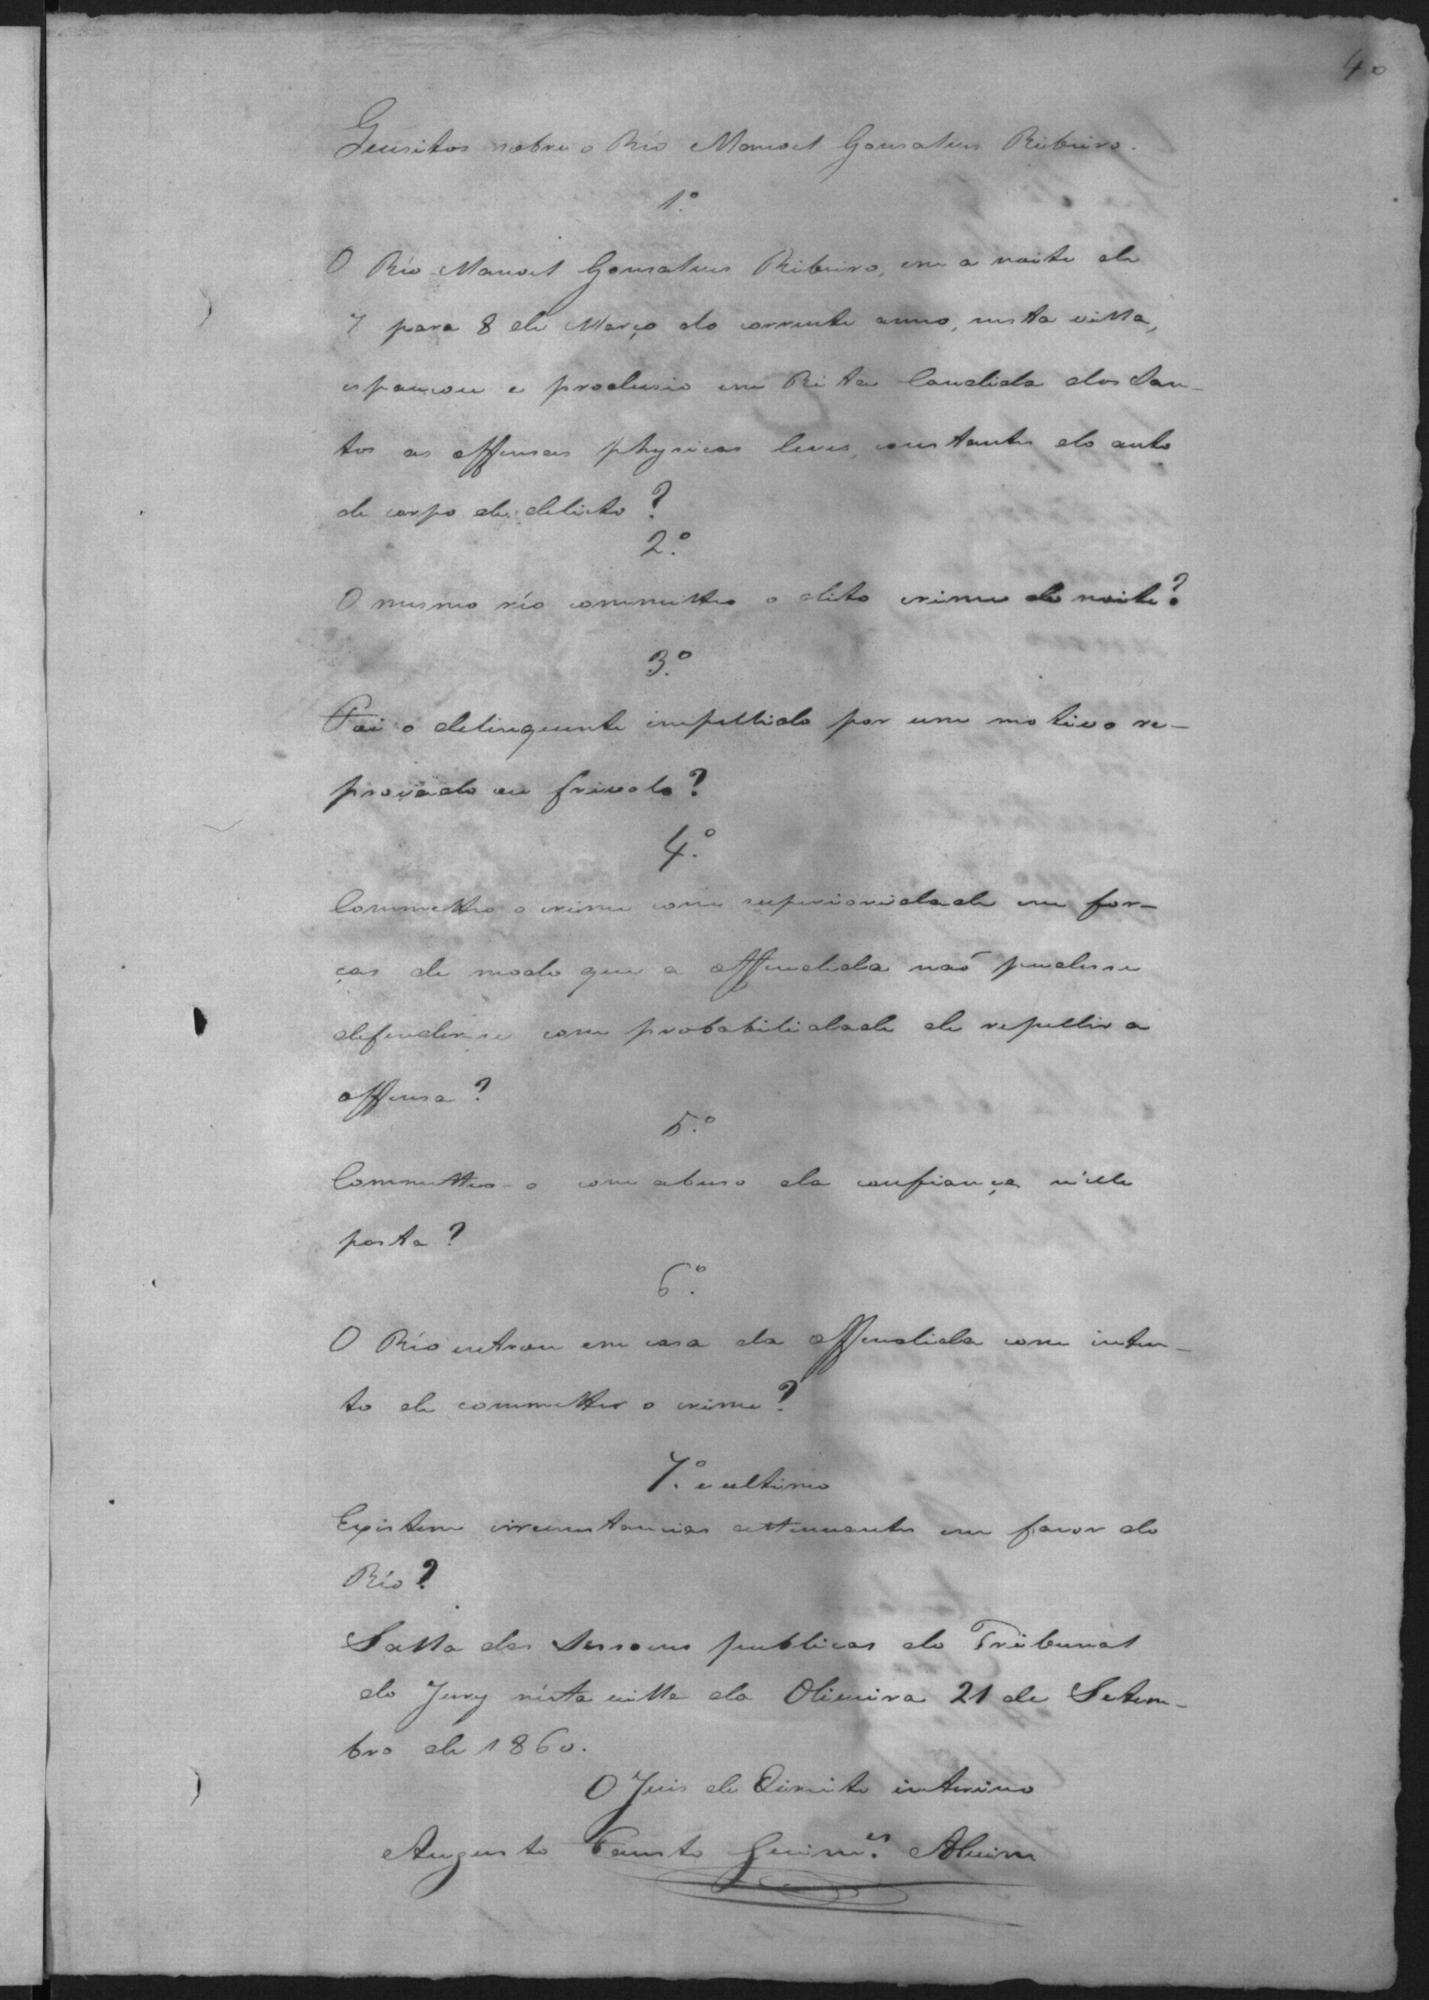 40
Queisitos sobre o Réo Manoel Gonsalves Ribeiro.
1.º
O Réo Manoel Gonsalves Ribeiro, em a noite de
7 para 8 de Março do corrente anno, nesta villa,
espancou e produsio em Rita Candida dos San-
tos as offensas physicas leves, constantes do auto
de corpo de delicto?
2.º
O mesmo réo commetteo o dito crime de noite?
3.º
Foi o delinquente impellido por um motivo re-
provado ou frivolo?
4.º
Commetteo o crime com superioridade em for-
ças de modo que a offendida naõ pudesse
defender-se com probabilidade de repellir a
offensa?
5.º
Commetteo-o com abuso da confiança n'elle
posta?
6.º
O Réo entrou em casa da offendida com inten-
to de commetter o crime?
7.º e ultimo
Existem circunstancias attenuantes em favor do
Réo?
Salla das Sessoens publicas do Tribunal
do Jury nésta villa da Oliveira 21 de Setem-
bro de 1860.
O Juis de Direito interino
Augusto Fausto Guim.es Alvim